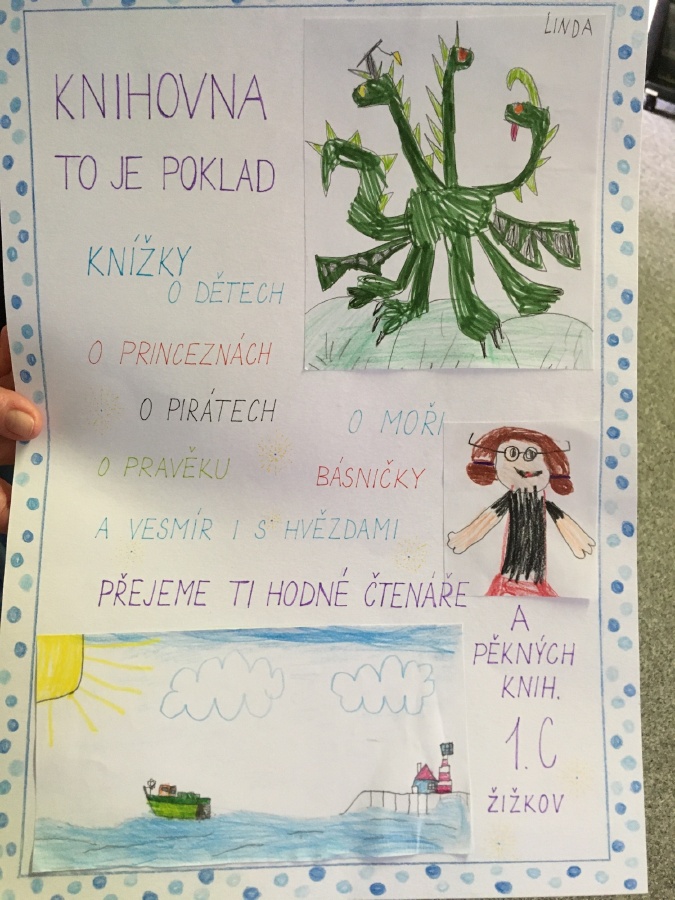 LINDA
KNIHOVNA
TO JE POKLAD
KNÍŽKY
O DĚTECH
O PRINCEZNÁCH
O PIRÁTECH
O MOŘI
O PRAVĚKU
BÁSNIČKY
A VESMÍR I S HVĚZDAMI
PŘEJEME TI HODNĚ ČTENÁŘE
A
PĚKNÝCH
KNIH.
1.C
ŽIŽKOV